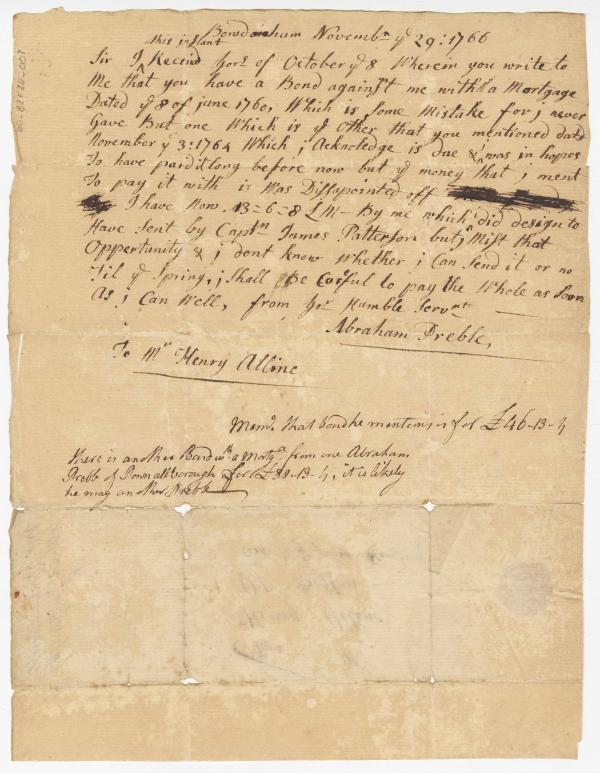 Bowdoinham Novembr ye 29: 1766
this instant
Sir I ^ Receivd yors of October ye 8 Wherein you write to
Me that you have a Bond against me with a Mortgage
Dated ye 8 of june 1760, Which is some Mistake for i never
Gave But one Which is ye Other that you mentioned datd
November ye 3: 1764 Which i Acknoledge is due & i was in hopes
To have paid it long before now but ye money that i ment
To pay it with is Was Dissypointed off
I have Now 13=6=8 L M - By me which i did design to
Have Sent by Captn James Patterson but i Mist that
Opportunity & i dont know Whether i Can Send it or no
Til ye Spring, i Shall Be Carful to pay the Whole as Soon
As i Can Well, from yor Humble Servnt
Abraham Preble,
To Mr Henry Alline
Memo. that bond he mentions is for £46-13-4
There is another Bond wth a Mortga from one Abraham
Prebb of Pownallborough for £38-13-4, it is likely
he may another Prebb